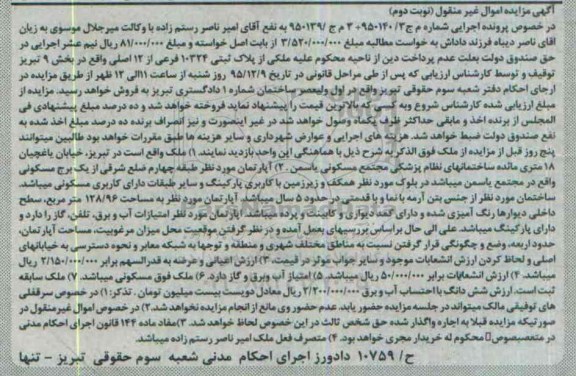 آگهی مزایده اموال غیر منقول (نوبت دوم)
در خصوص پرونده اجرایی شماره م ج۳/ ۹۵۰۱۴۰+ ۳ م ج /۹۵۰۱۳۹ به نفع آقای امیر ناصر رستم زاده با وکالت میرجلال موسوی به زیان
آقای ناصر دیباه فرزند داداش به خواست مطالبه مبلغ ۳/۵۲۰/۰۰۰/۰۰۰ از بابت اصل خواسته و مبلغ ۸۱/۰۰۰/۰۰۰ ریال نیم عشر اجرایی در
حق صندوق دولت بعلت عدم پرداخت دین از ناحیه محکوم علیه ملکی از پلاک ثبتی ۱۰۳۲۴ فرعی از ۱۲ اصلی واقع در بخش ۹ تبریز
توقیف و توسط کارشناس ارزیابی که پس از طی مراحل قانونی در تاریخ ۹۵/۱۲/۹ روز شنبه از ساعت ۱۱الی ۱۲ ظهر از طریق مزایده در
اجرای احکام دفتر شعبه سوم حقوقی تبریز واقع در اول ولیعصر ساختمان شماره ۱ دادگستری تبریز به فروش خواهد رسید. مزایده از
مبلغ ارزیابی شده کارشناس شروع وبه کسی که بالاترین قیمت را پیشنهاد نماید فروخته خواهد شد و ده درصد مبلغ پیشنهادی فی
المجلس از برنده اخذ و مابقی حداکثر ظرف یکماه وصول خواهد شد در غیر اینصورت و نیز انصراف برنده ده درصد مبلغ اخذ شده به
نفع صندوق دولت ضبط خواهد شد. هزینه های اجرایی و عوارض شهرداری و سایر هزینه ها طبق مقررات خواهد بود طالبین میتوانند
پنج روز قبل از مزایده از ملک فوق الذکر به شرح ذیل با هماهنگی این واحد بازدید نمایند. ۱) ملک واقع است در تبریز، خیابان یاغچیان
۱۸ متری مانده ساختمانهای نظام پزشکی مجتمع مسکونی یاسمن . ۲) آپارتمان مورد نظر طبقه چهارم ضلع شرقی از یک برج مسکونی
واقع در مجتمع یاسمن میباشد در بلوک مورد نظر همکف و زیرزمین با کاربری پارکینگ و سایر طبقات دارای کاربری مسکونی میباشد.
ساختمان مورد نظر از جنس بتن آرمه با نما و با قدمتی در حدود ۵ سال میباشد. آپارتمان مورد نظر به مساحت ۱۲۸/۹۶ متر مربع، سطح
داخلی دیوارها رنگ آمیزی شده و دارای کمد دیواری و کابینت و پرده میباشد. آپارتمان مورد نظر امتیازات آب و برق، تلفن، گاز را دارد و
دارای پارکینگ میباشد. علی الی حال براساس بررسیهای بعمل آمده و در نظر گرفتن موقعیت محل میزان مرغوبیت، مساحت آپارتمان،
حدود اربعه، وضع و چگونگی قرار گرفتن نسبت به مناطق مختلف شهری و منطقه و توجها به شبکه معابر و نحوه دسترسی به خیابانهای
اصلی و لحاظ کردن ارزش انشعابات موجود و سایر جوانب موثر در قیمت، ۳) ارزش اعیانی و عرصه به قدرالسهم برابر ۲/۱۵۰/۰۰۰/۰۰۰
میباشد. ۴) ارزش انشعابات برابر ۵۰/۰۰۰/۰۰۰ ریال میباشد. ۵) امتیاز آب وبرق و گاز دارد. ۶) ملک فوق مسکونی میباشد. ۷) ملک سابقه
ثبت است. ارزش شش دانگ با احتساب آب و برق ۲/۲۰۰/۰۰۰/۰۰۰ ریال معادل دویست بیست میلیون تومان . تذکر:۱) در خصوص سرقفلی
های توقیفی مالک میتواند در جلسه مزایده حضور یابد. عدم حضور وی مانع از انجام مزایده نخواهد شد. ۲) در خصوص اموال غیر منقول در
صورتیکه مزایده قبلا به اجاره واگذار شده حق شخص ثالث در این خصوص لحاظ خواهد شد. ۳)مفاد ماده ۱۴۴ قانون اجرای احکام مدنی
در محکوم له خریدار مجری خواهد بود. ۴) متصرف فعل ملک امیر ناصر رستم زاده میباشد.
ح/ ۱۰۷۵۹ دادورز اجرای احکام مدنی شعبه سوم حقوقی تبریز - تنها